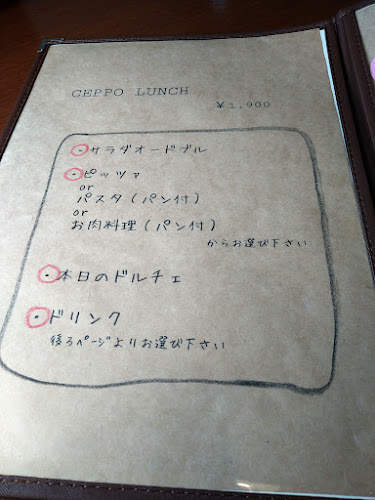 CEPPO LUNCH
¥1,900
・サラダオードブル
・ピッツァ
or
パスタ（パン付）
or
お肉料理（パン付）
からお選び下さい
・本日のドルチェ
・ドリンク
後ろページよりお選び下さい